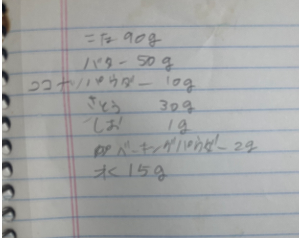 こな 90g
バター 50g
ココナッパウダー 10g
さとう 30g
しお 1g
ベーキングパウダー 2g
水 15g